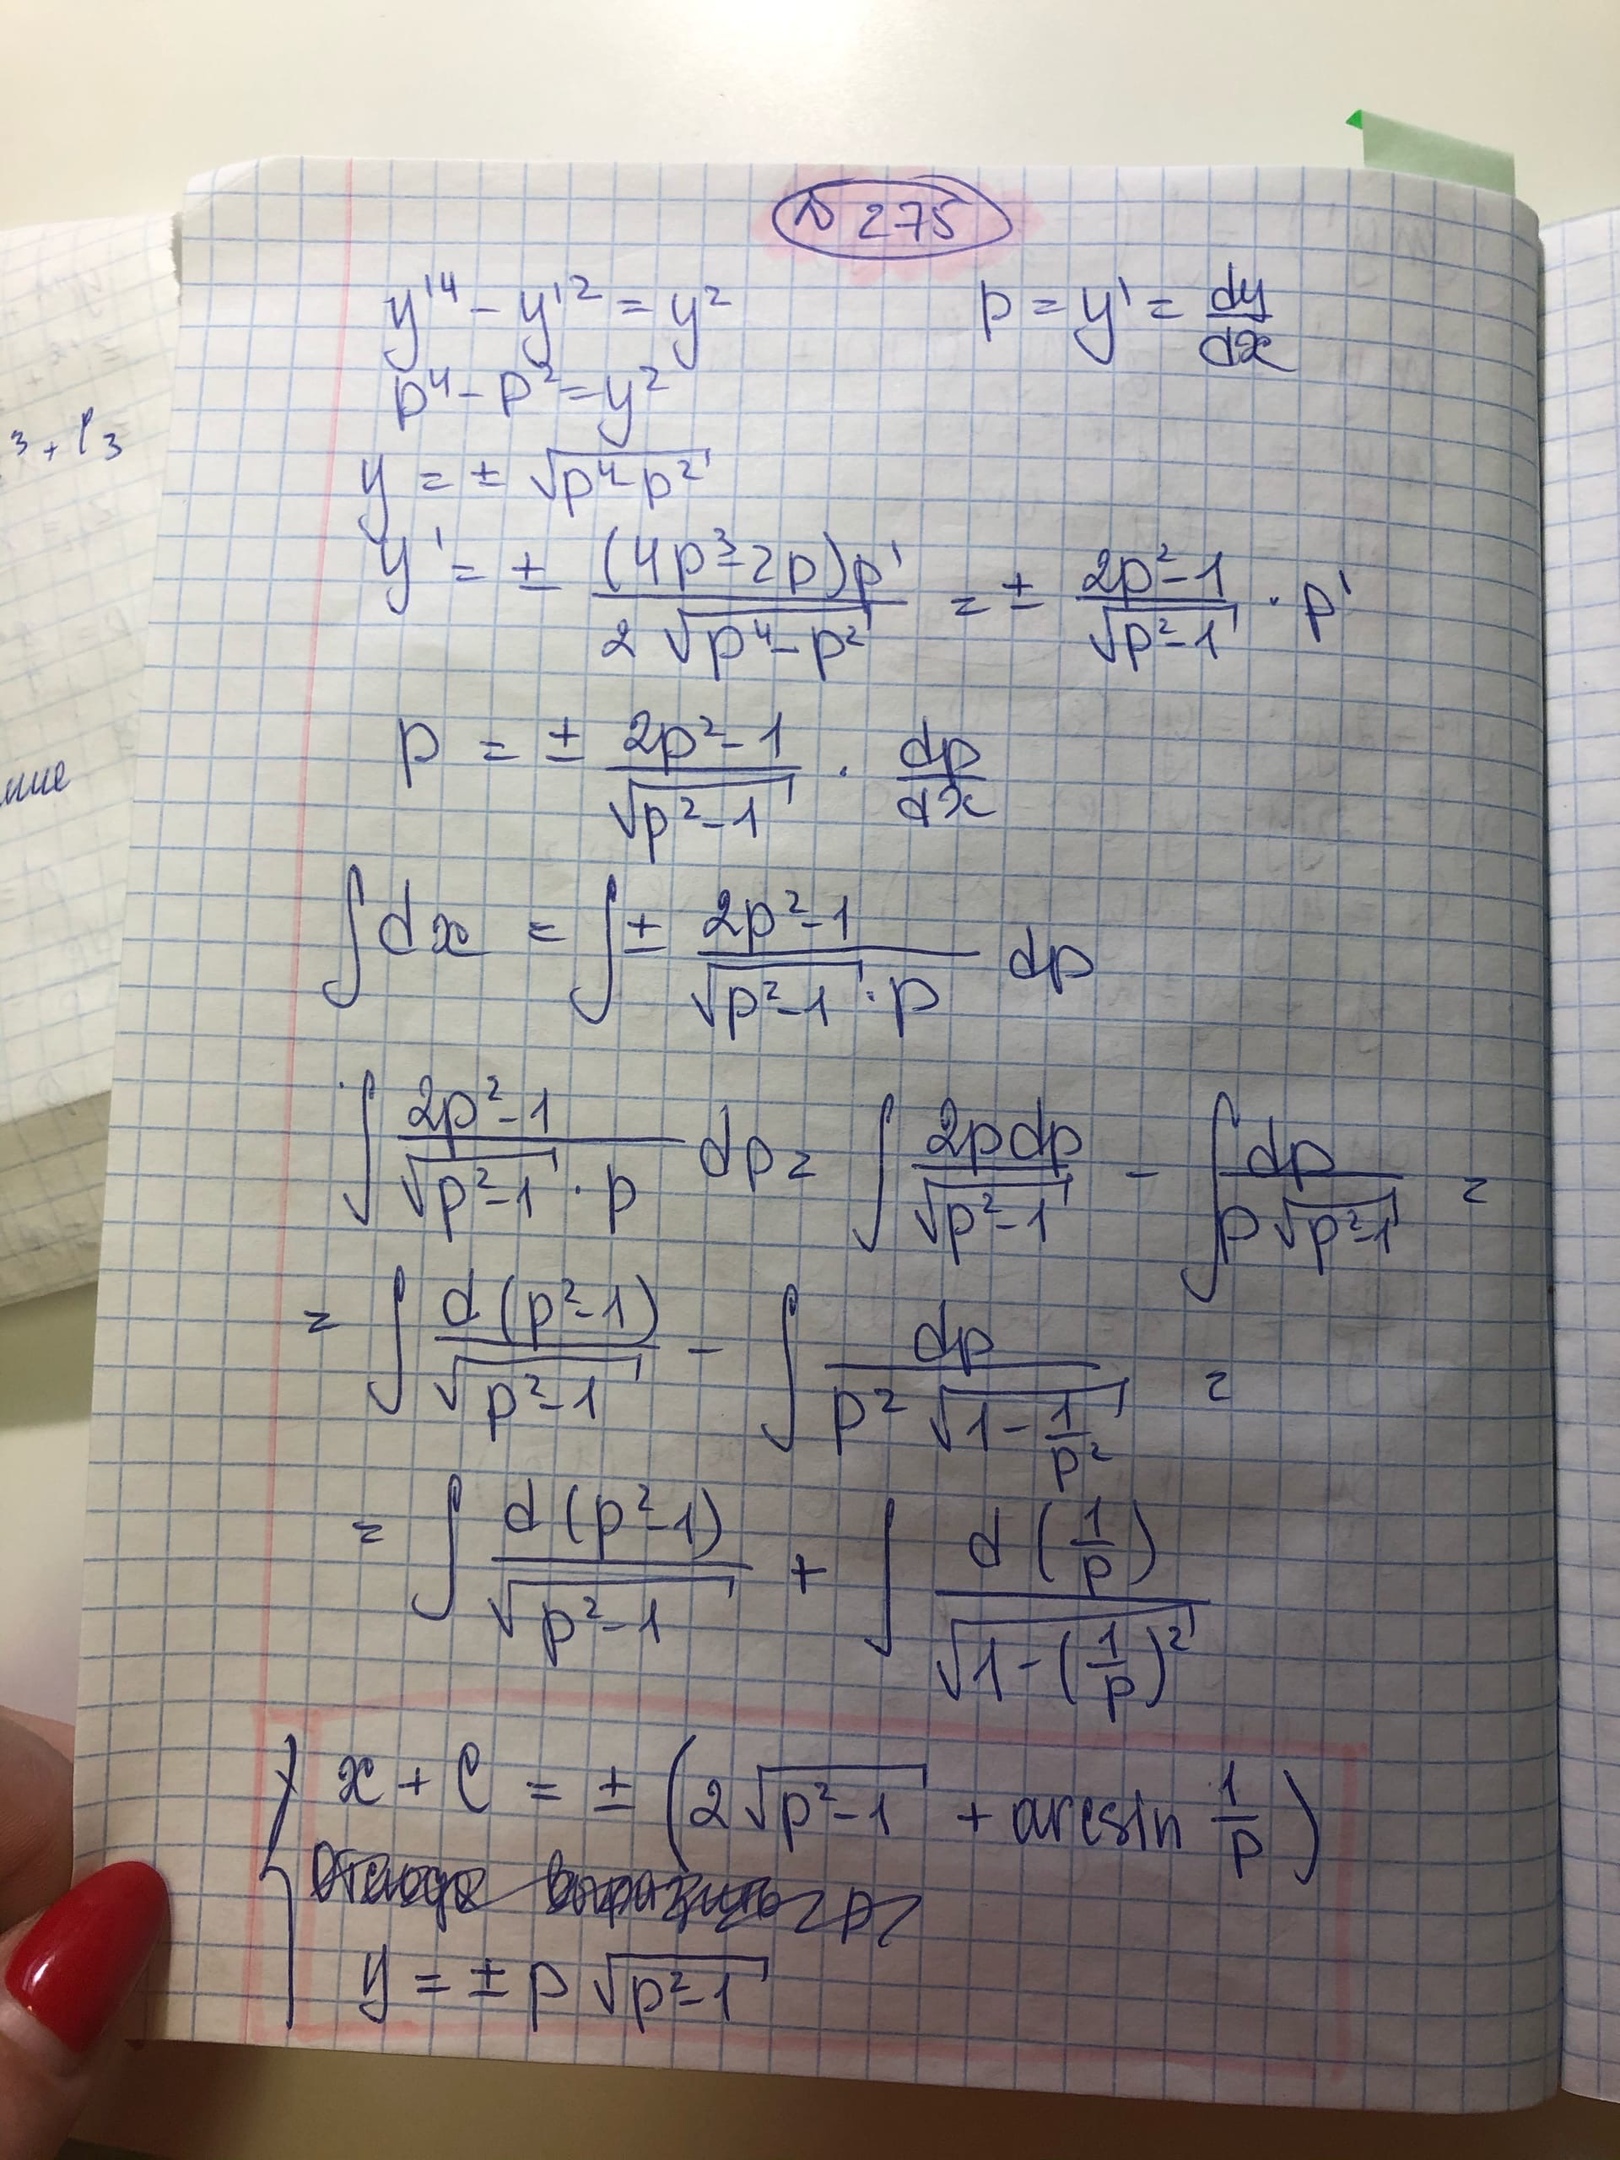 3 + C3
ние
№ 275
y'⁴ - y'² = y²    p = y' = dy/dx
p⁴ - p² = y²
y = ± √(p⁴-p²)
y' = ± (4p³-2p)p' / 2√(p⁴-p²) = ± (2p²-1)/√(p²-1) · p'
p = ± (2p²-1)/√(p²-1) · dp/dx
∫dx = ∫± (2p²-1)/(√(p²-1) · p) dp
∫ (2p²-1)/(√(p²-1) · p) dp = ∫ 2pdp/√(p²-1) - ∫ dp/(p√(p²-1)) =
= ∫ d(p²-1)/√(p²-1) - ∫ dp/(p² √(1-1/p²)) =
= ∫ d(p²-1)/√(p²-1) + ∫ d(1/p)/√(1-(1/p)²)
{ x + C = ± (2√(p²-1) + arcsin 1/p)
y = ± p √(p²-1)